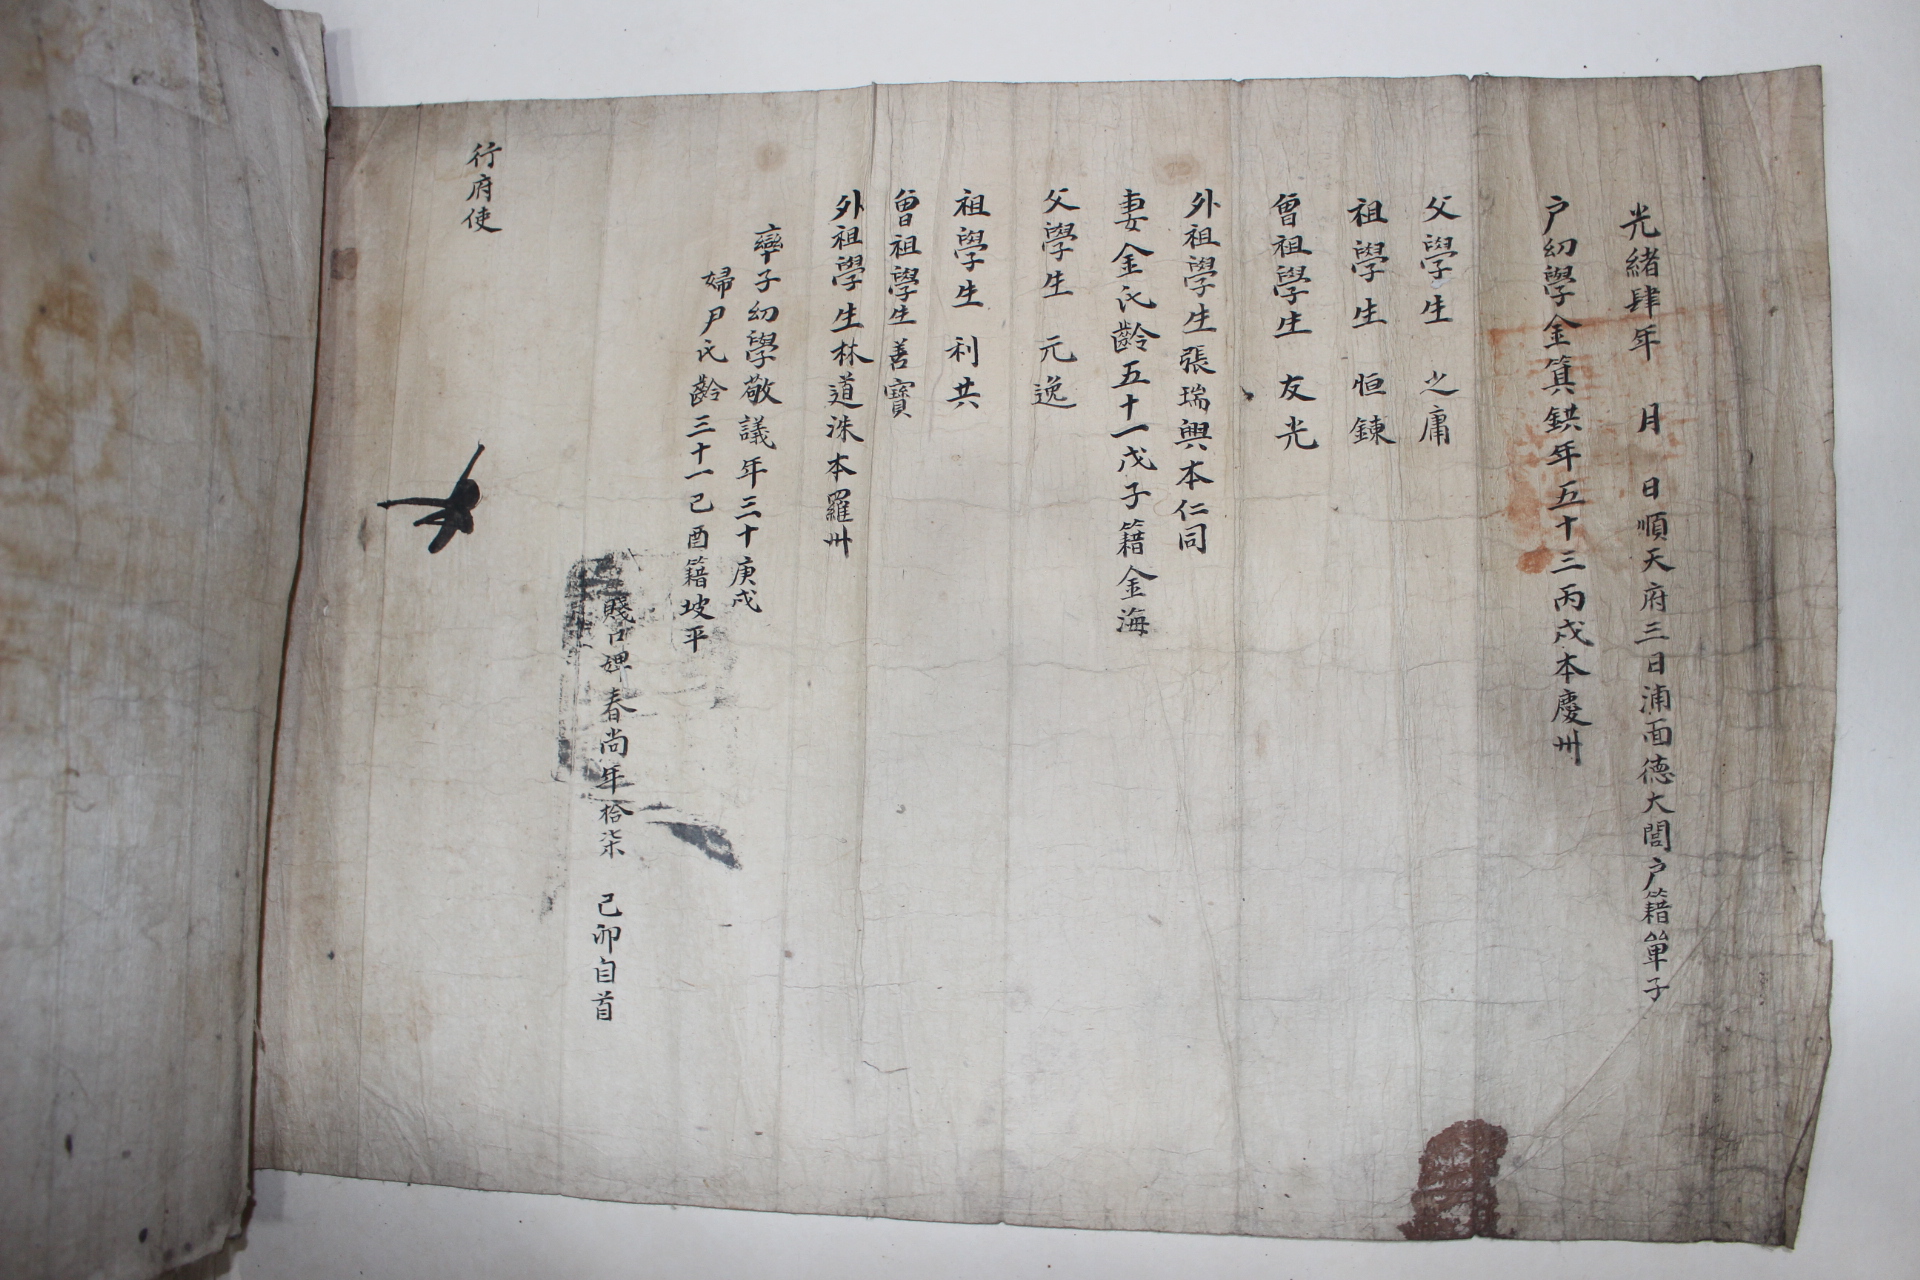 光緒肆年 月 日順天府三日浦面德大閭户籍單子
户幼學金箕鉷年五十三丙戌本慶州
父學生 之庸
祖學生 恒鍊
曾祖學生 友光
外祖學生張瑞興本仁同
妻金氏齡五十一戊子籍金海
父學生 元逸
祖學生 利共
曾祖學生善寶
外祖學生林道洙本羅州
率子幼學敬議年三十庚戌
婦尹氏齡三十一己酉籍坡平
賤口婢春尚年拾柒 己卯自首
行府使